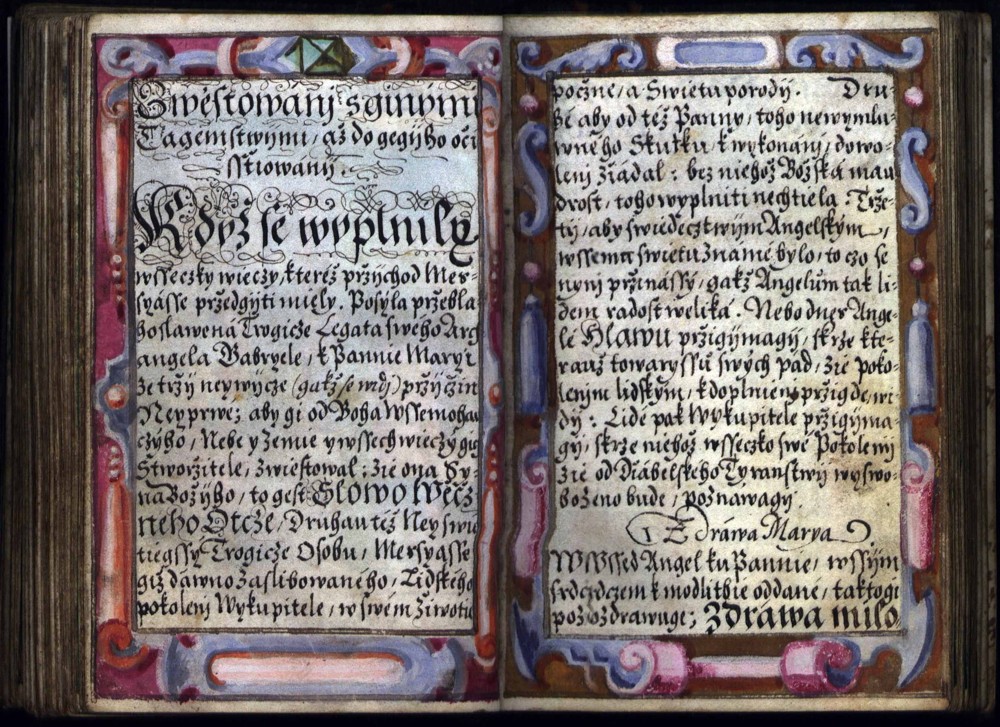 Zwěstowánj s ginými
Tagemstwými / až do gegijho oči
sstiowánij.
Když se wyplnily
wsseczky wieczy, kteréž přzichod Mes-
syásse přzedgijti miely. Posyla přzebla
hoslawená Trogicze Legata sweho Arch
angela Gabryele / k Pannie Maryi
ze trzij neywijcze (gakž se widj) przijczin
Neyprwe; aby gi od Boha Wssemohau
czyho / Nebe y Zemie y wssech wieczy gich
Stworžitele / zwiestowal: žie ona Sy-
na Božijho / to gest Slowo Wěcz
neho Otcže / Druhau též Ney swie
tiegssy Trogicže Osobu / Messyasse
giž dawno Zaslibowaného / Lidského
pokolenj Wykupitele / w swém životie
počzne / a Swieta porodij. Dru-
hé aby od též Panny / toho newymlu-
wného Skutku k wykonánj / dowo-
lenj žiádal: bez niehož Božská mau
drost / toho wyplniti nechtiela: Tržie-
tij / aby swiedectwijm Angelským,
wssemu swietu známé bylo / to czo se
nynj przinássý / gakž Angelům tak li-
dem radost weliká. Nebo dner Ange-
lé Hlawu prziigijmagij / skrze kte-
rauž towaryssů swých pád / žie poko-
lenjm lidským / k doplnienj przigde, wi-
dij: Lidé pak Wykupitele przigijma-
gij / skrze niehož wsseczko swé Pokolenj
žie od Diábelského Tyranstwij wyswo-
bozeno bude / poznáwagij.
Zdráwa Marya
Wssed Angel ku Pannie / wssijm
srdczem k modlitbie oddané / takto gi
pozdrawuge; Zdráwa milo-